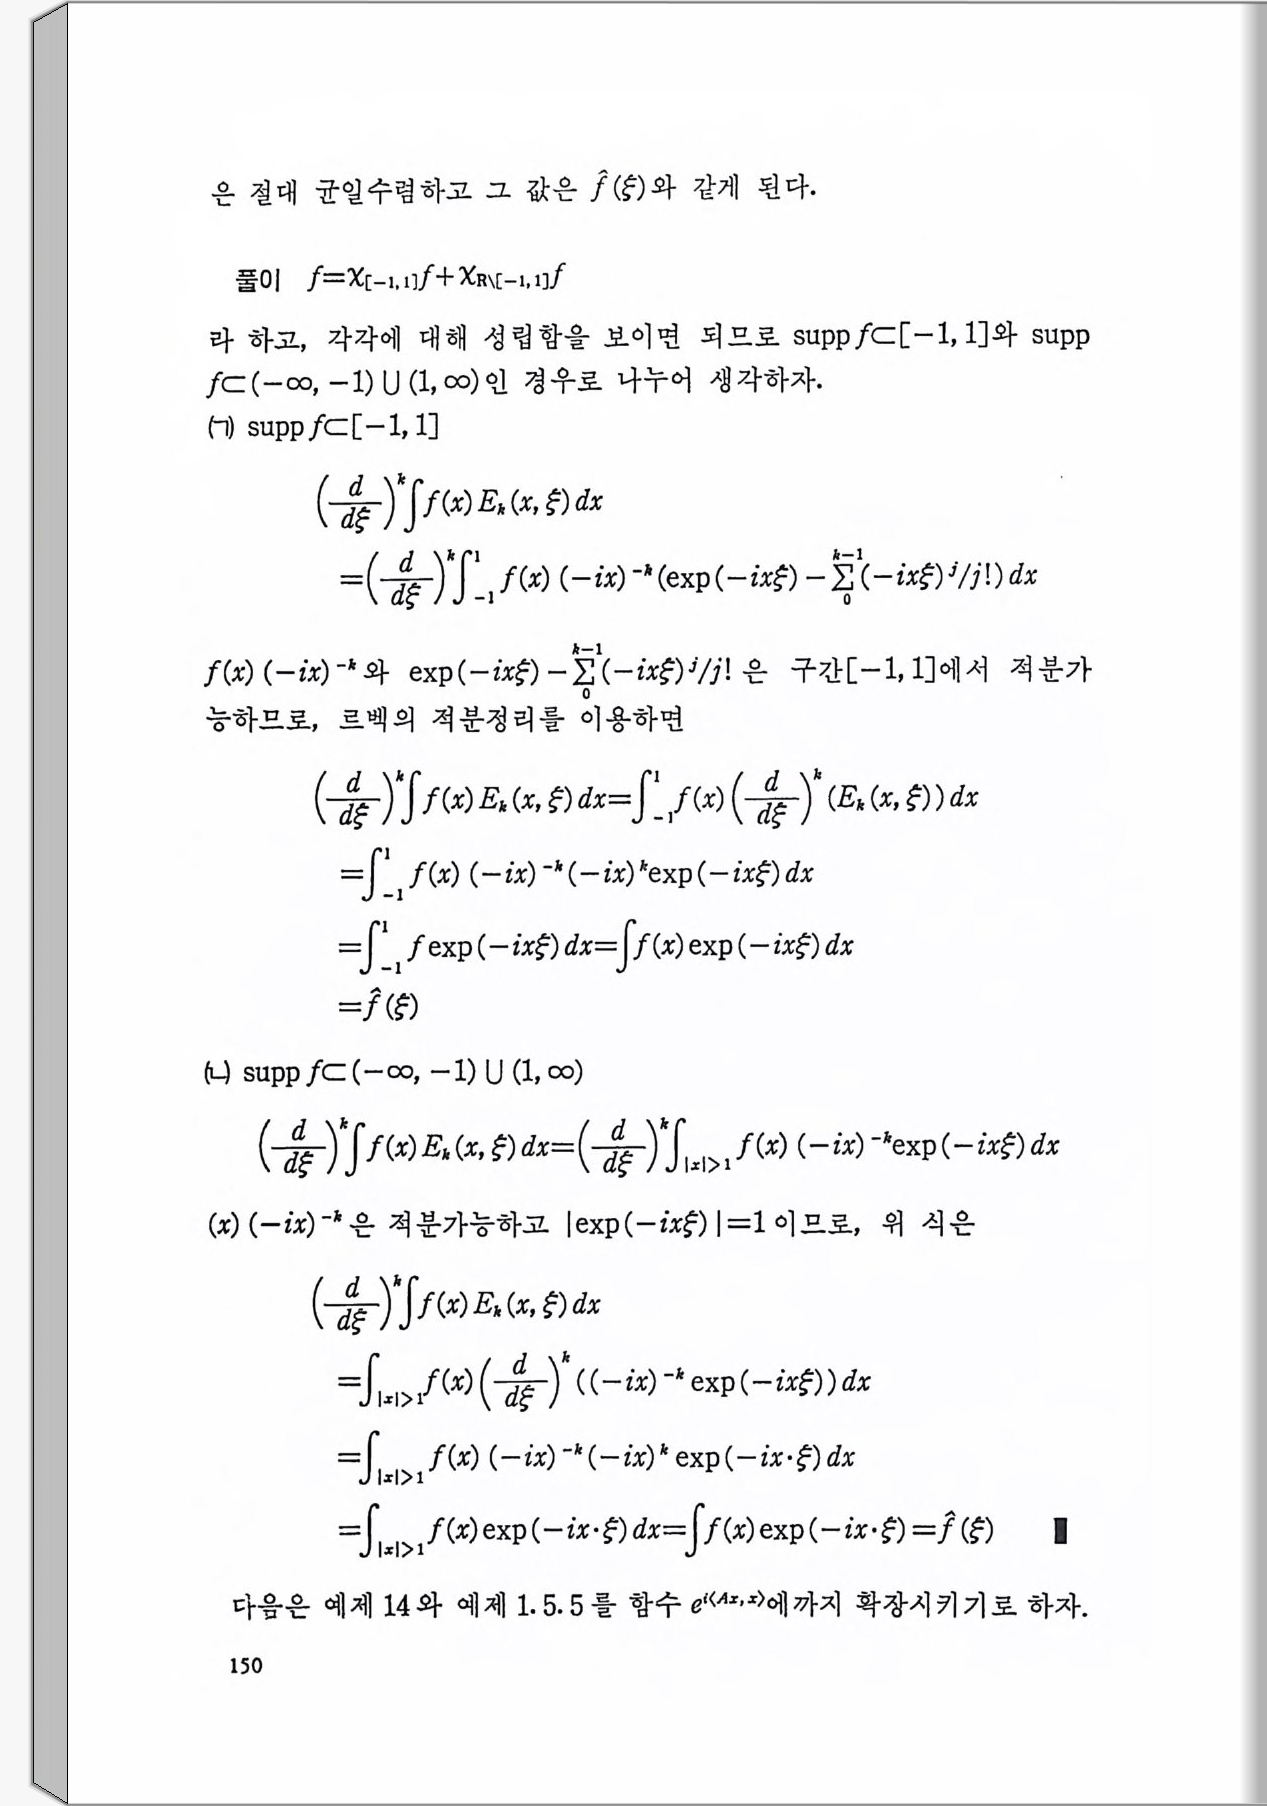 은 절대 균일수렴하고 그 값은 f̂(ξ)와 같게 된다.
풀이 f=χ_{[-1,1]}f+χ_{R\[-1,1]}f
라 하고, 각각에 대해 성립함을 보이면 되므로 supp f⊂[-1, 1]와 supp
f⊂(-∞, -1)∪(1, ∞)인 경우로 나누어 생각하자.
(ㄱ) supp f⊂[-1, 1]
(d/dξ)^k ∫f(x) E_k(x, ξ) dx
=(d/dξ)^k ∫_{-1}^{1} f(x) (-ix)^{-k}(exp(-ixξ)-∑_{0}^{k-1}(-ixξ)^j/j!) dx
f(x) (-ix)^{-k}와 exp(-ixξ)-∑_{0}^{k-1}(-ixξ)^j/j! 은 구간[-1, 1]에서 적분가
능하므로, 르벡의 적분정리를 이용하면
(d/dξ)^k ∫f(x) E_k(x, ξ) dx=∫_{-1}^{1} f(x) (d/dξ)^k (E_k(x, ξ)) dx
=∫_{-1}^{1} f(x) (-ix)^{-k}(-ix)^k exp(-ixξ) dx
=∫_{-1}^{1} f exp(-ixξ) dx=∫f(x) exp(-ixξ) dx
=f̂(ξ)
(ㄴ) supp f⊂(-∞, -1)∪(1, ∞)
(d/dξ)^k ∫f(x) E_k(x, ξ) dx=(d/dξ)^k ∫_{|x|>1} f(x) (-ix)^{-k}exp(-ixξ) dx
(x) (-ix)^{-k}은 적분가능하고 |exp(-ixξ)|=1이므로, 위 식은
(d/dξ)^k ∫f(x) E_k(x, ξ) dx
=∫_{|x|>1} f(x) (d/dξ)^k ((-ix)^{-k} exp(-ixξ)) dx
=∫_{|x|>1} f(x) (-ix)^{-k}(-ix)^k exp(-ix·ξ) dx
=∫_{|x|>1} f(x) exp(-ix·ξ) dx=∫f(x) exp(-ix·ξ)=f̂(ξ) ▮
다음은 예제 14와 예제 1.5.5를 함수 e^{i⟨Ax, x⟩}에까지 확장시키기로 하자.
150